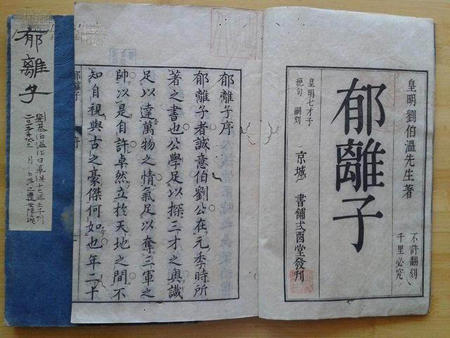 皇明劉伯溫先生著
不許翻刻
千里必究
郁離子
皇明七才子
絕句 嗣刻
京城 書鋪式酉堂發刊
郁離子序
郁離子者誠意伯劉公在元季時所
著之書也公學足以探三才之奧識
足以達萬物之情氣足以奪三軍之
帥以是自許卓然立於天地之間不
知自視與古之豪傑何如也年二十
郁離子
郁離子